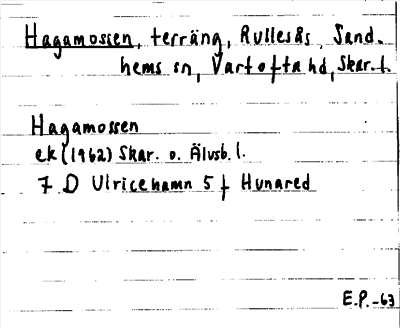 Hagamossen, terräng, Rullesås, Sand-
hems sn, Vartofta hd, Skar. l.
Hagamossen
ek (1962) Skar. o. Älvsb. l.
7 D Ulricehamn 5 f Hunared
E.P. -63